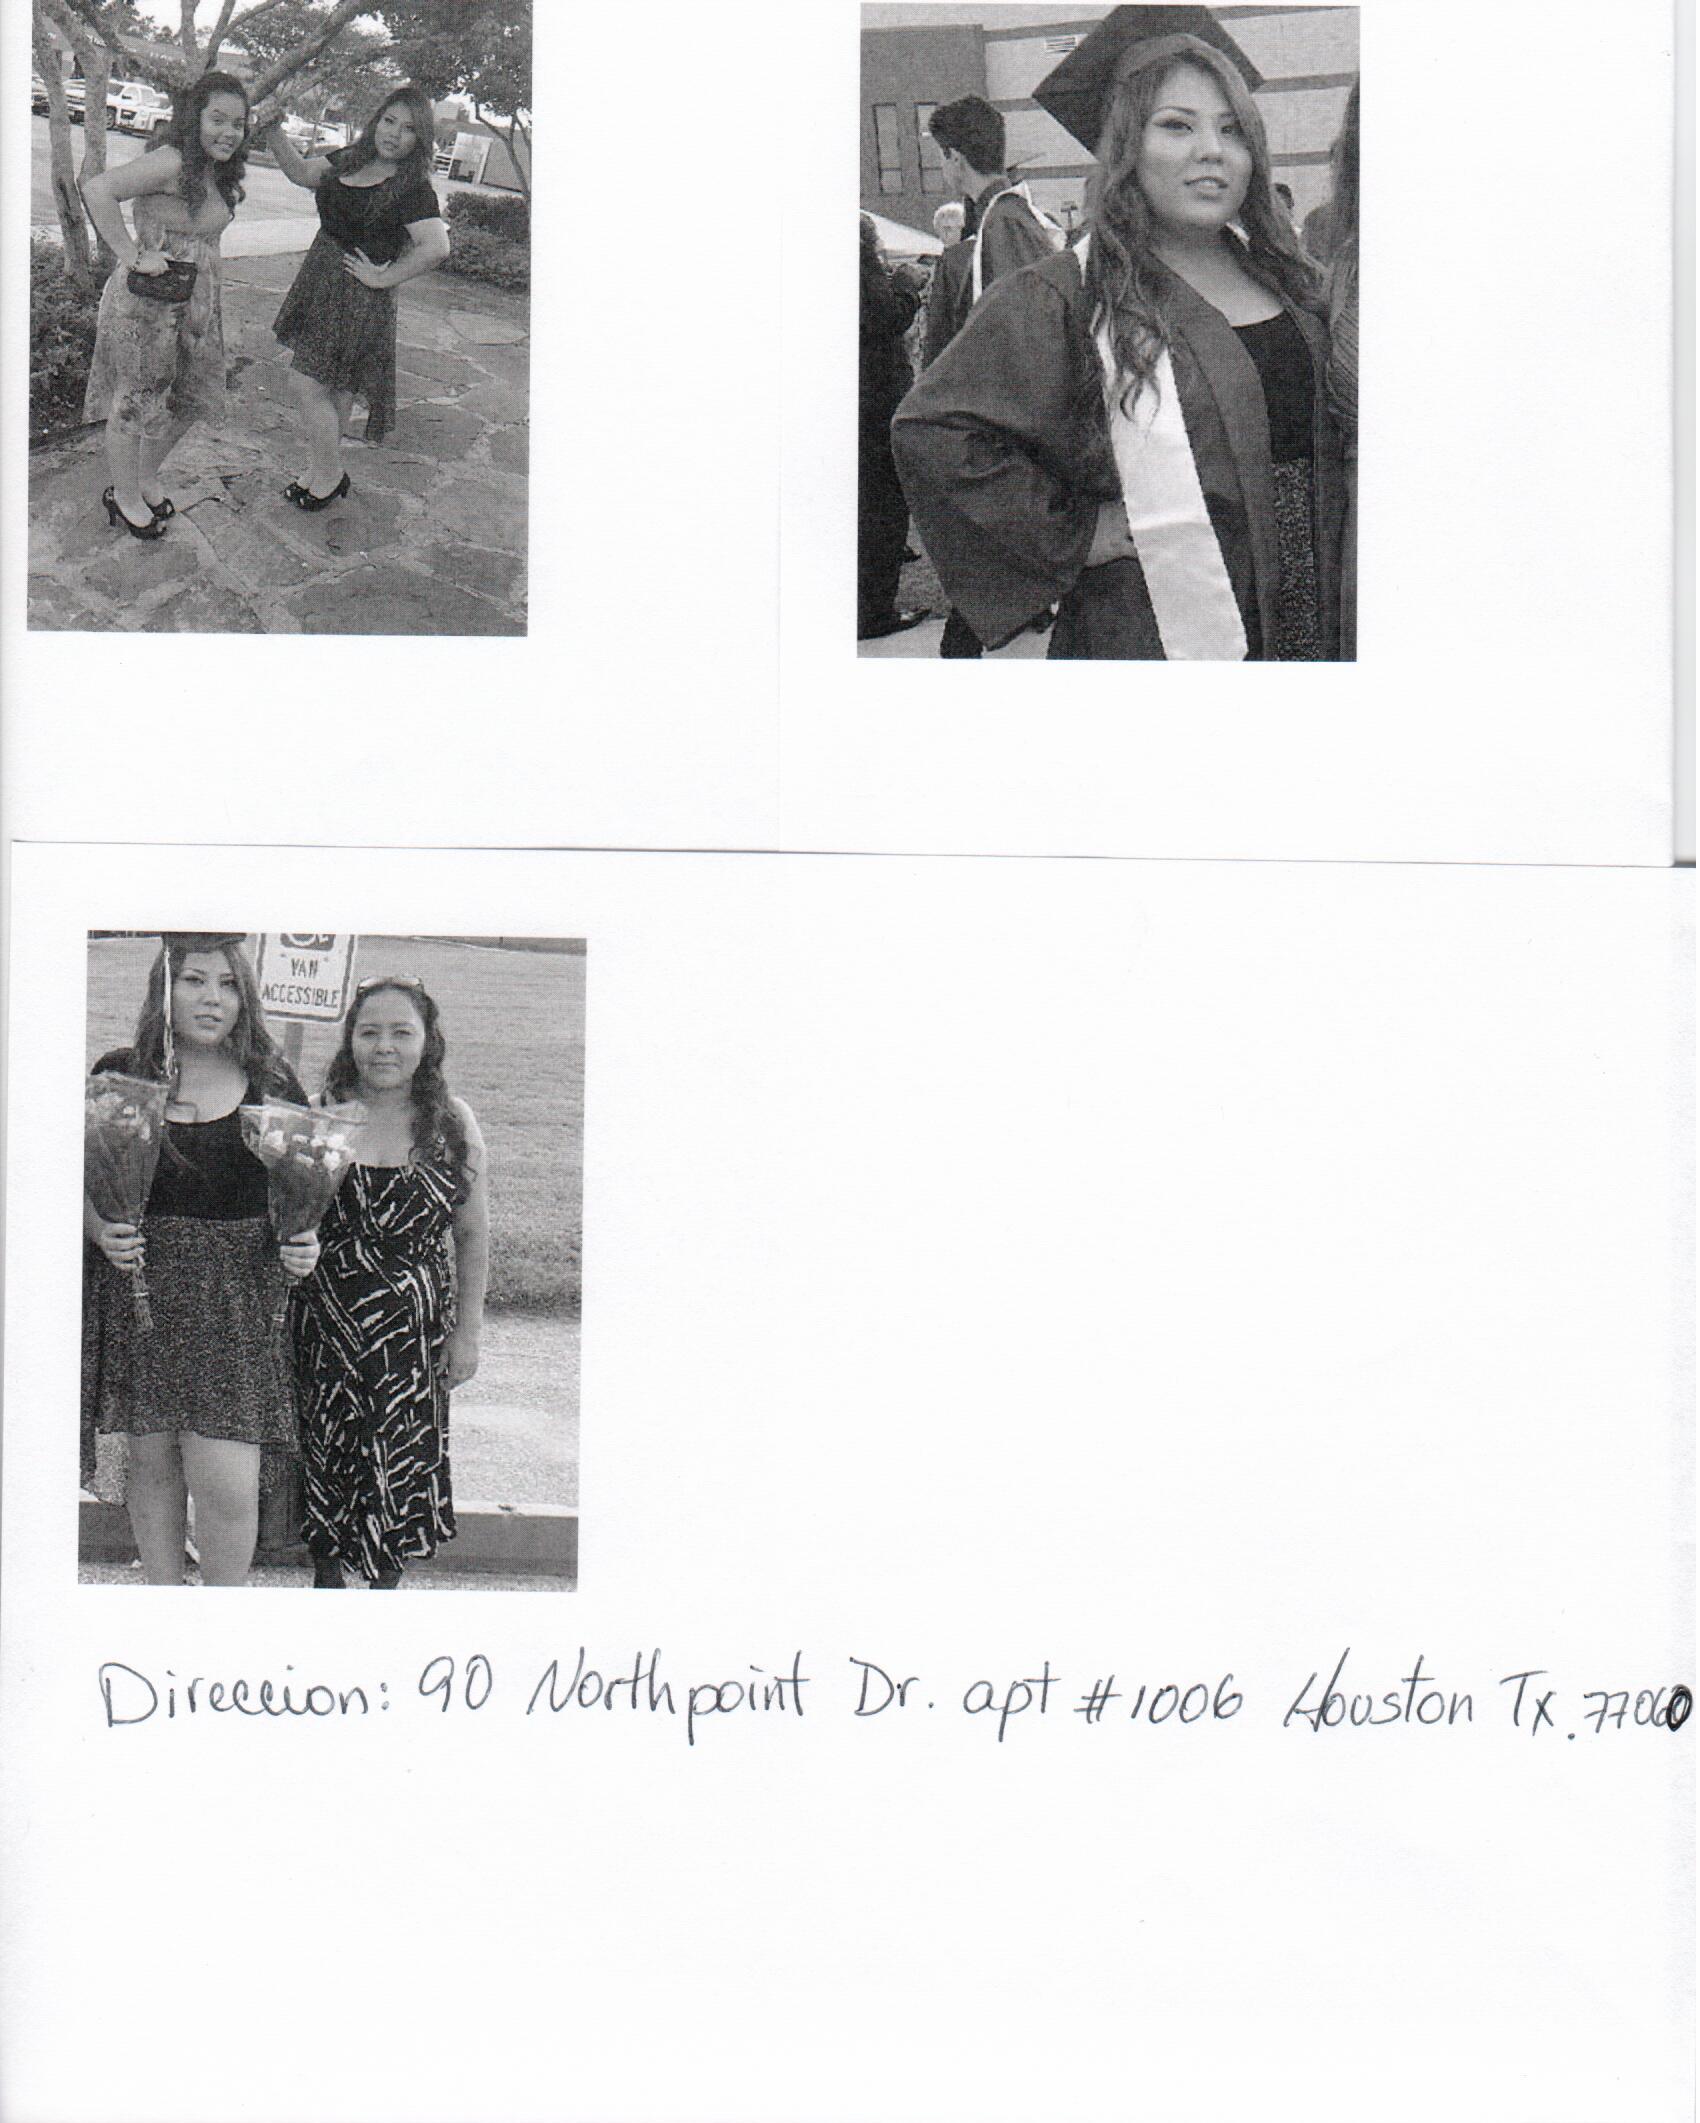 VAN
ACCESSIBLE
Direccion: 90 Northpoint Dr. apt #1006 Houston Tx. 77060